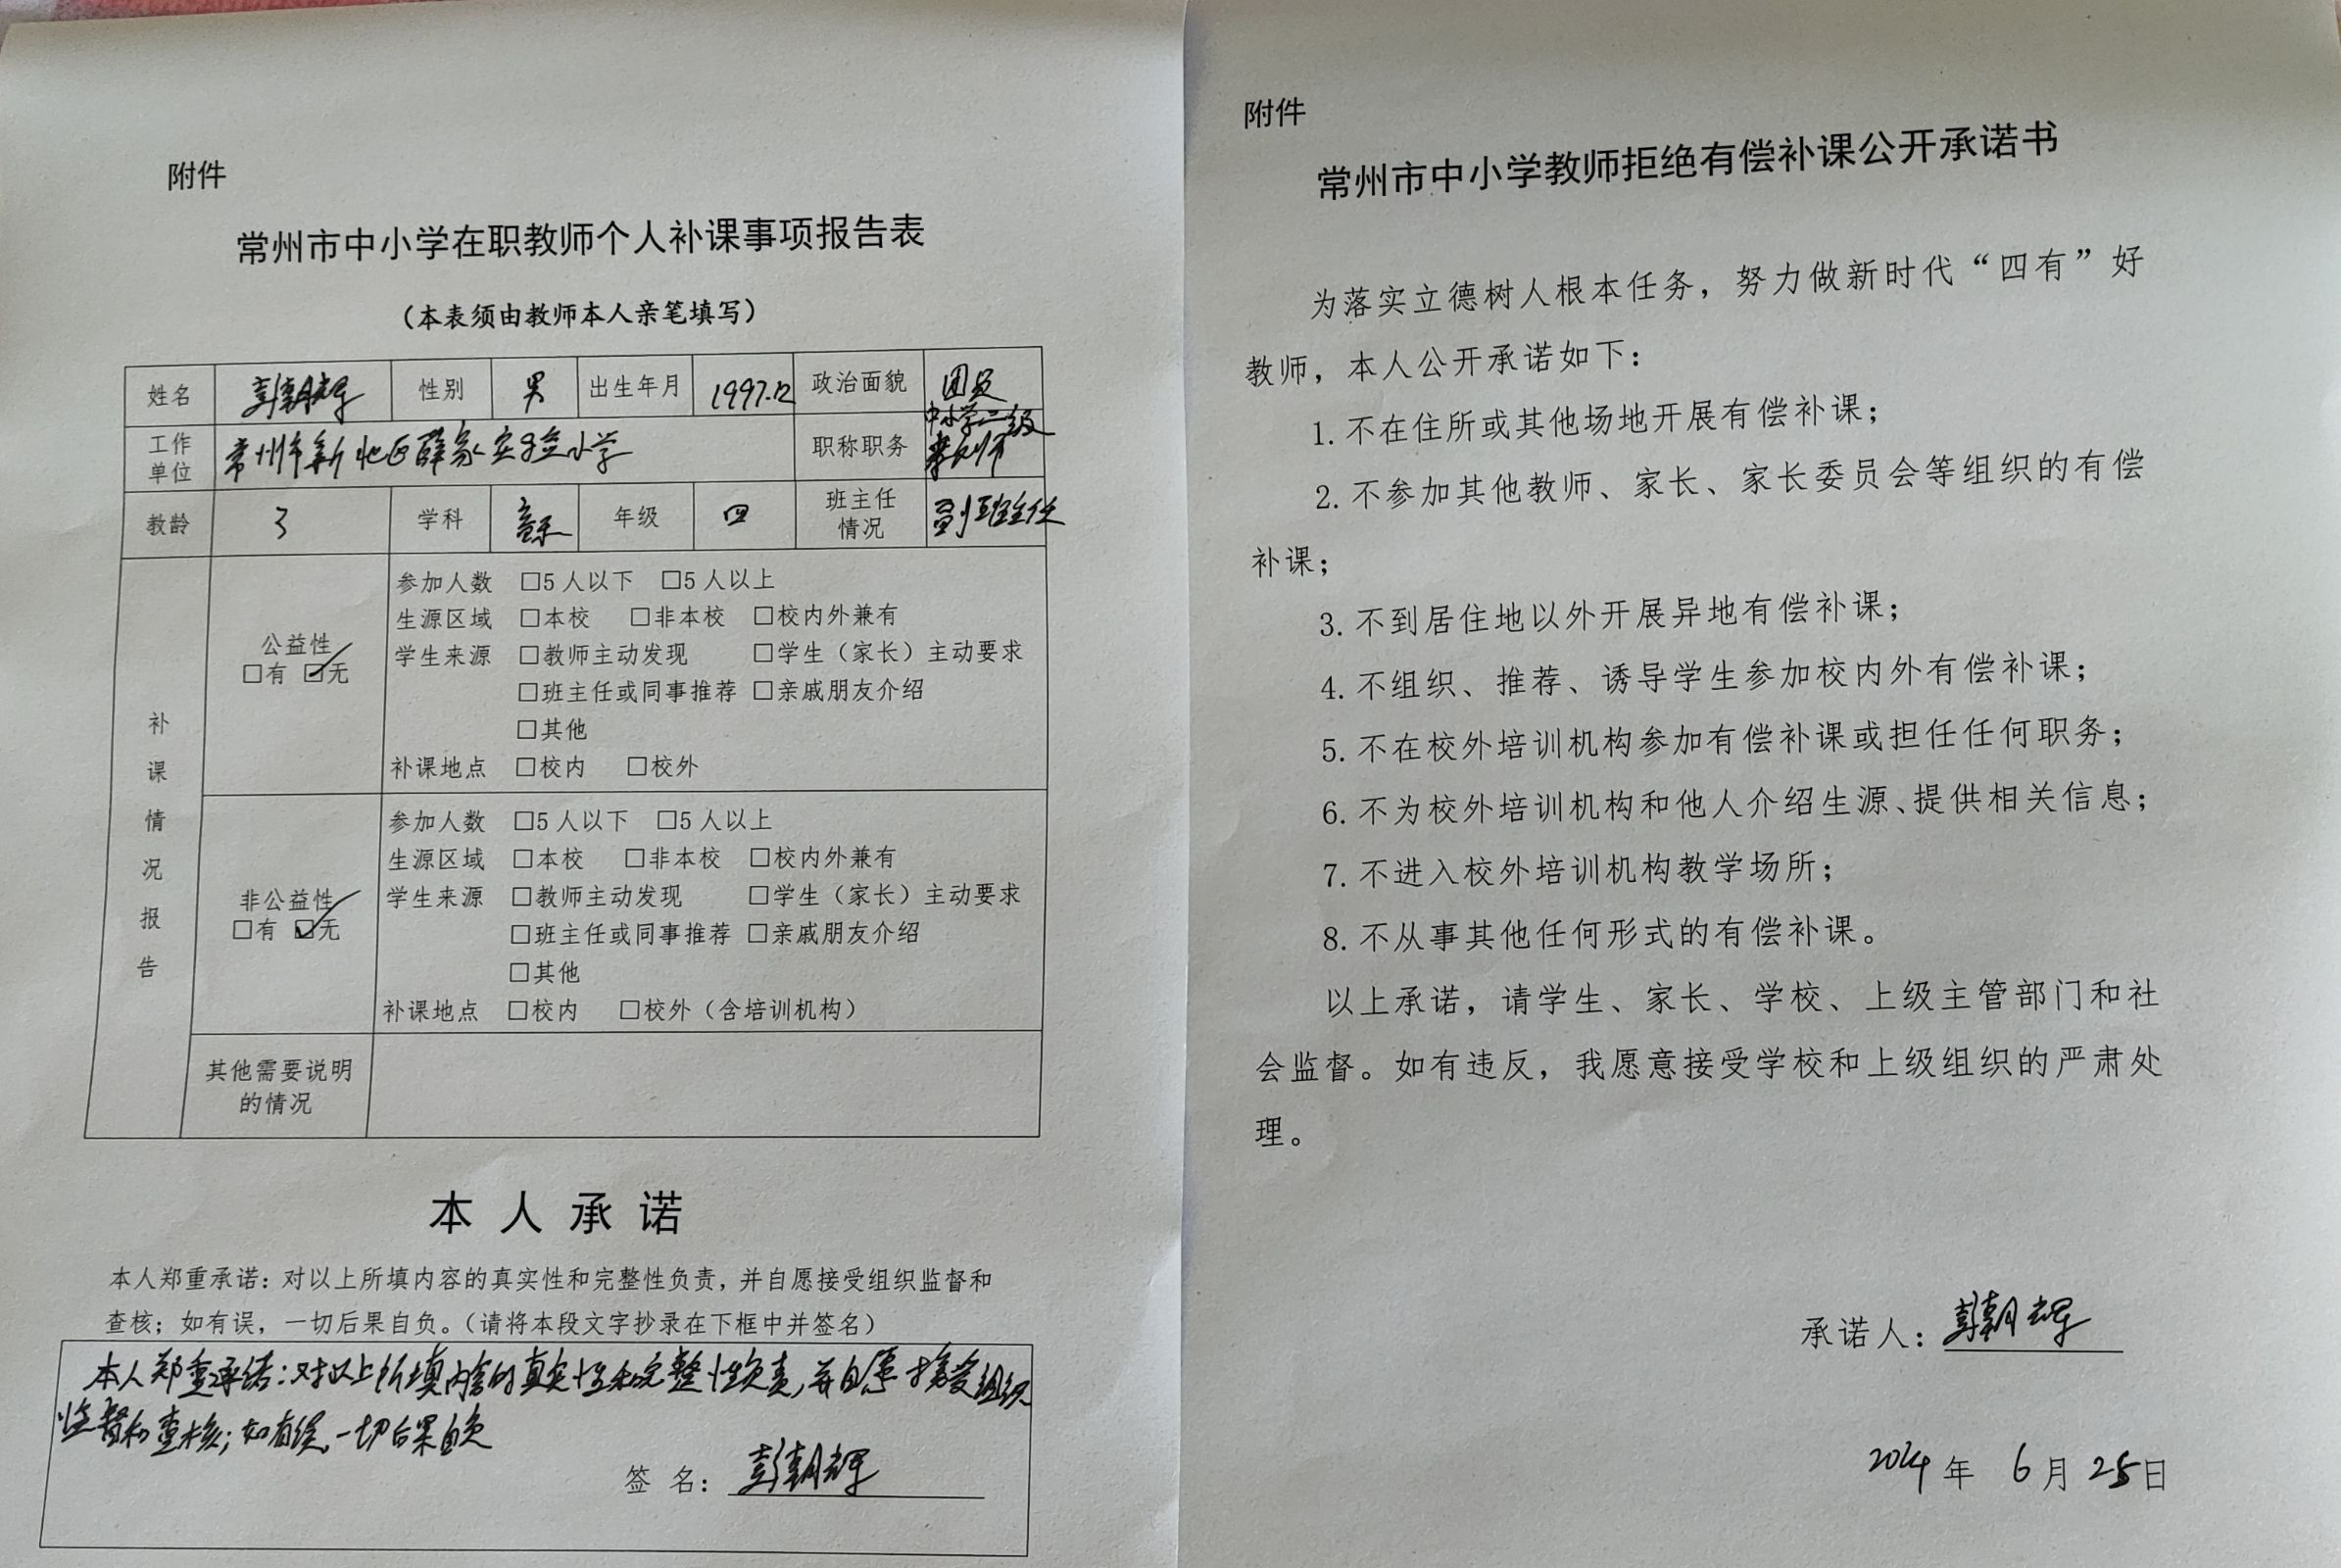 附件
常州市中小学在职教师个人补课事项报告表
（本表须由教师本人亲笔填写）
姓名 彭朝辉 性别 男 出生年月 1997.12 政治面貌 团员
工作单位 常州市新北区薛家实验小学 职称职务 中小学二级教师
教龄 3 学科 音乐 年级 四 班主任情况 副班主任
补课情况报告
公益性
□有 ☑无
参加人数 □5人以下 □5人以上
生源区域 □本校 □非本校 □校内外兼有
学生来源 □教师主动发现 □学生（家长）主动要求
□班主任或同事推荐 □亲戚朋友介绍
□其他
补课地点 □校内 □校外
非公益性
□有 ☑无
参加人数 □5人以下 □5人以上
生源区域 □本校 □非本校 □校内外兼有
学生来源 □教师主动发现 □学生（家长）主动要求
□班主任或同事推荐 □亲戚朋友介绍
□其他
补课地点 □校内 □校外（含培训机构）
其他需要说明
的情况
本人承诺
本人郑重承诺：对以上所填内容的真实性和完整性负责，并自愿接受组织监督和
查核；如有误，一切后果自负。（请将本段文字抄录在下框中并签名）
本人郑重承诺：对以上所填内容的真实性和完整性负责，并自愿接受组织
监督和查核；如有误，一切后果自负
签 名：彭朝辉
附件
常州市中小学教师拒绝有偿补课公开承诺书
为落实立德树人根本任务，努力做新时代“四有”好
教师，本人公开承诺如下：
1.不在住所或其他场地开展有偿补课；
2.不参加其他教师、家长、家长委员会等组织的有偿
补课；
3.不到居住地以外开展异地有偿补课；
4.不组织、推荐、诱导学生参加校内外有偿补课；
5.不在校外培训机构参加有偿补课或担任任何职务；
6.不为校外培训机构和他人介绍生源、提供相关信息；
7.不进入校外培训机构教学场所；
8.不从事其他任何形式的有偿补课。
以上承诺，请学生、家长、学校、上级主管部门和社
会监督。如有违反，我愿意接受学校和上级组织的严肃处
理。
承诺人：彭朝辉
2024年 6月25日